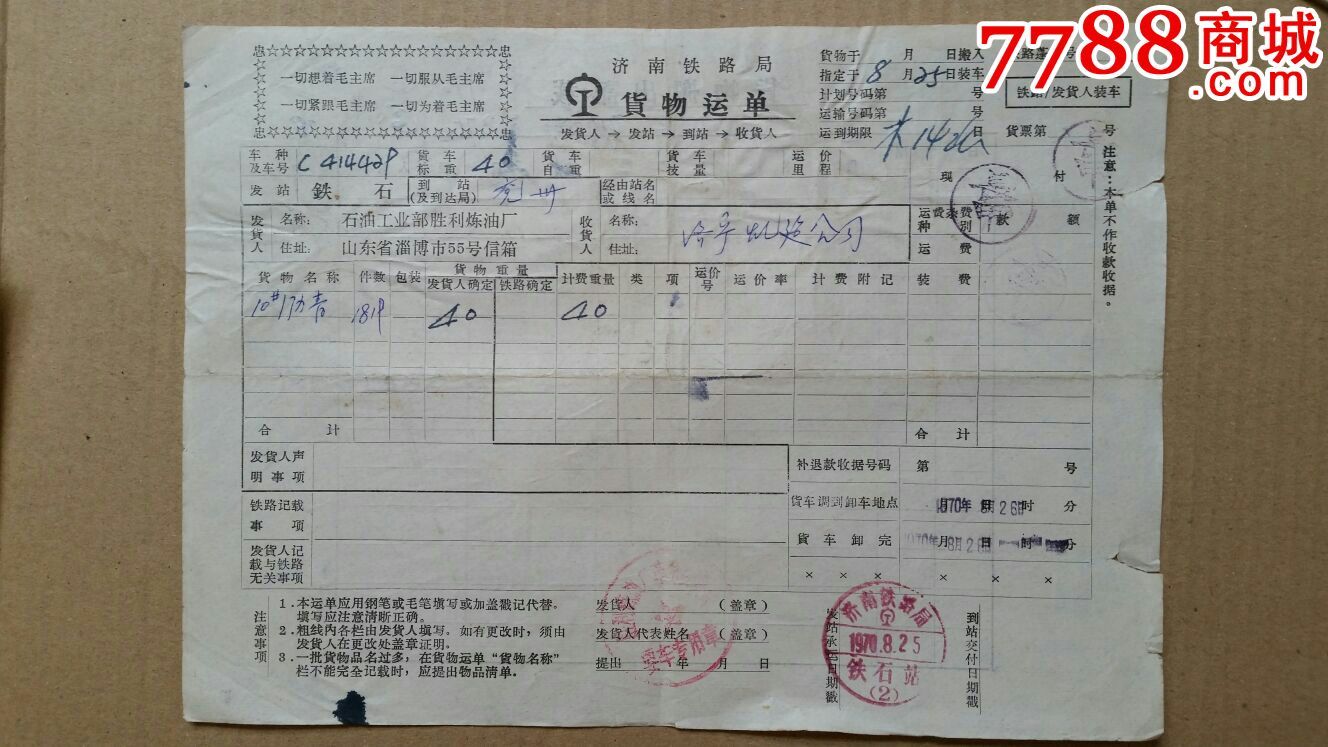 7788商城
.com
忠☆☆☆☆☆☆☆☆☆☆☆☆☆☆☆☆☆忠
一切想着毛主席 一切服从毛主席
一切紧跟毛主席 一切为着毛主席
忠☆☆☆☆☆☆☆☆☆☆☆☆☆☆☆☆☆忠
济南铁路局
貨物运单
发货人→发站→到站→收货人
货物于 月 日搬入
指定于8月25日装车
计划号码第 号
运输号码第 号
运到期限 日
铁路/发货人装车
货票第 号
注意：本单不作收款收据。
车种及车号 C 414429 货车标重 40 货车自重 货车技量 运价里程 现付
发站 鉄石 到站(及到达局) 兖州 经由站名或线名
运费杂费种别 款额
发货人 名称： 石油工业部胜利炼油厂 收货人 名称：
住址： 山东省淄博市55号信箱 住址： 运费
货物名称 件数 包装 货物重量 计费重量 类项 运价号 运价率 计费附记 装费
发货人确定 铁路确定
10# 189 40 40
合计 合计
发货人声明事项
补退款收据号码 第 号
铁路记载事项
货车调到卸车地点 1970年8月26日 月 日 时 分
货车卸完 1970年8月26日 月 日 时 分
发货人记载与铁路无关事项
× × × × × ×
注意事项
1．本运单应用钢笔或毛笔填写或加盖戳记代替。
填写应注意清晰正确。
2．粗线内各栏由发货人填写。如有更改时，须由
发货人在更改处盖章证明。
3．一批货物品名过多，在货物运单“货物名称”
栏不能完全记载时，应提出物品清单。
发货人 （盖章）
发货人代表姓名 （盖章）
提出 年 月 日
专用章
发站承运日期戳
济南铁路局
1970.8.25
鉄石站
(2)
到站交付日期戳